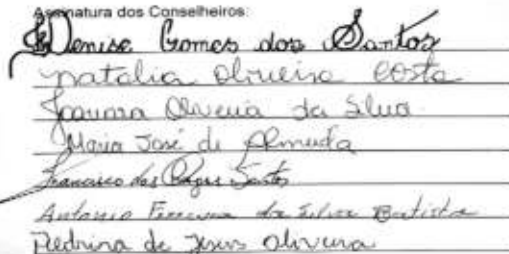 Assinatura dos Conselheiros:
Denise Gomes dos Santos
natalia oliveira costa
Joanara Oliveira da Silva
Maria José de Almeida
Francisco das Chagas Santos
Antonio Ferreira da Silva Batista
Pedrina de Jesus Oliveira